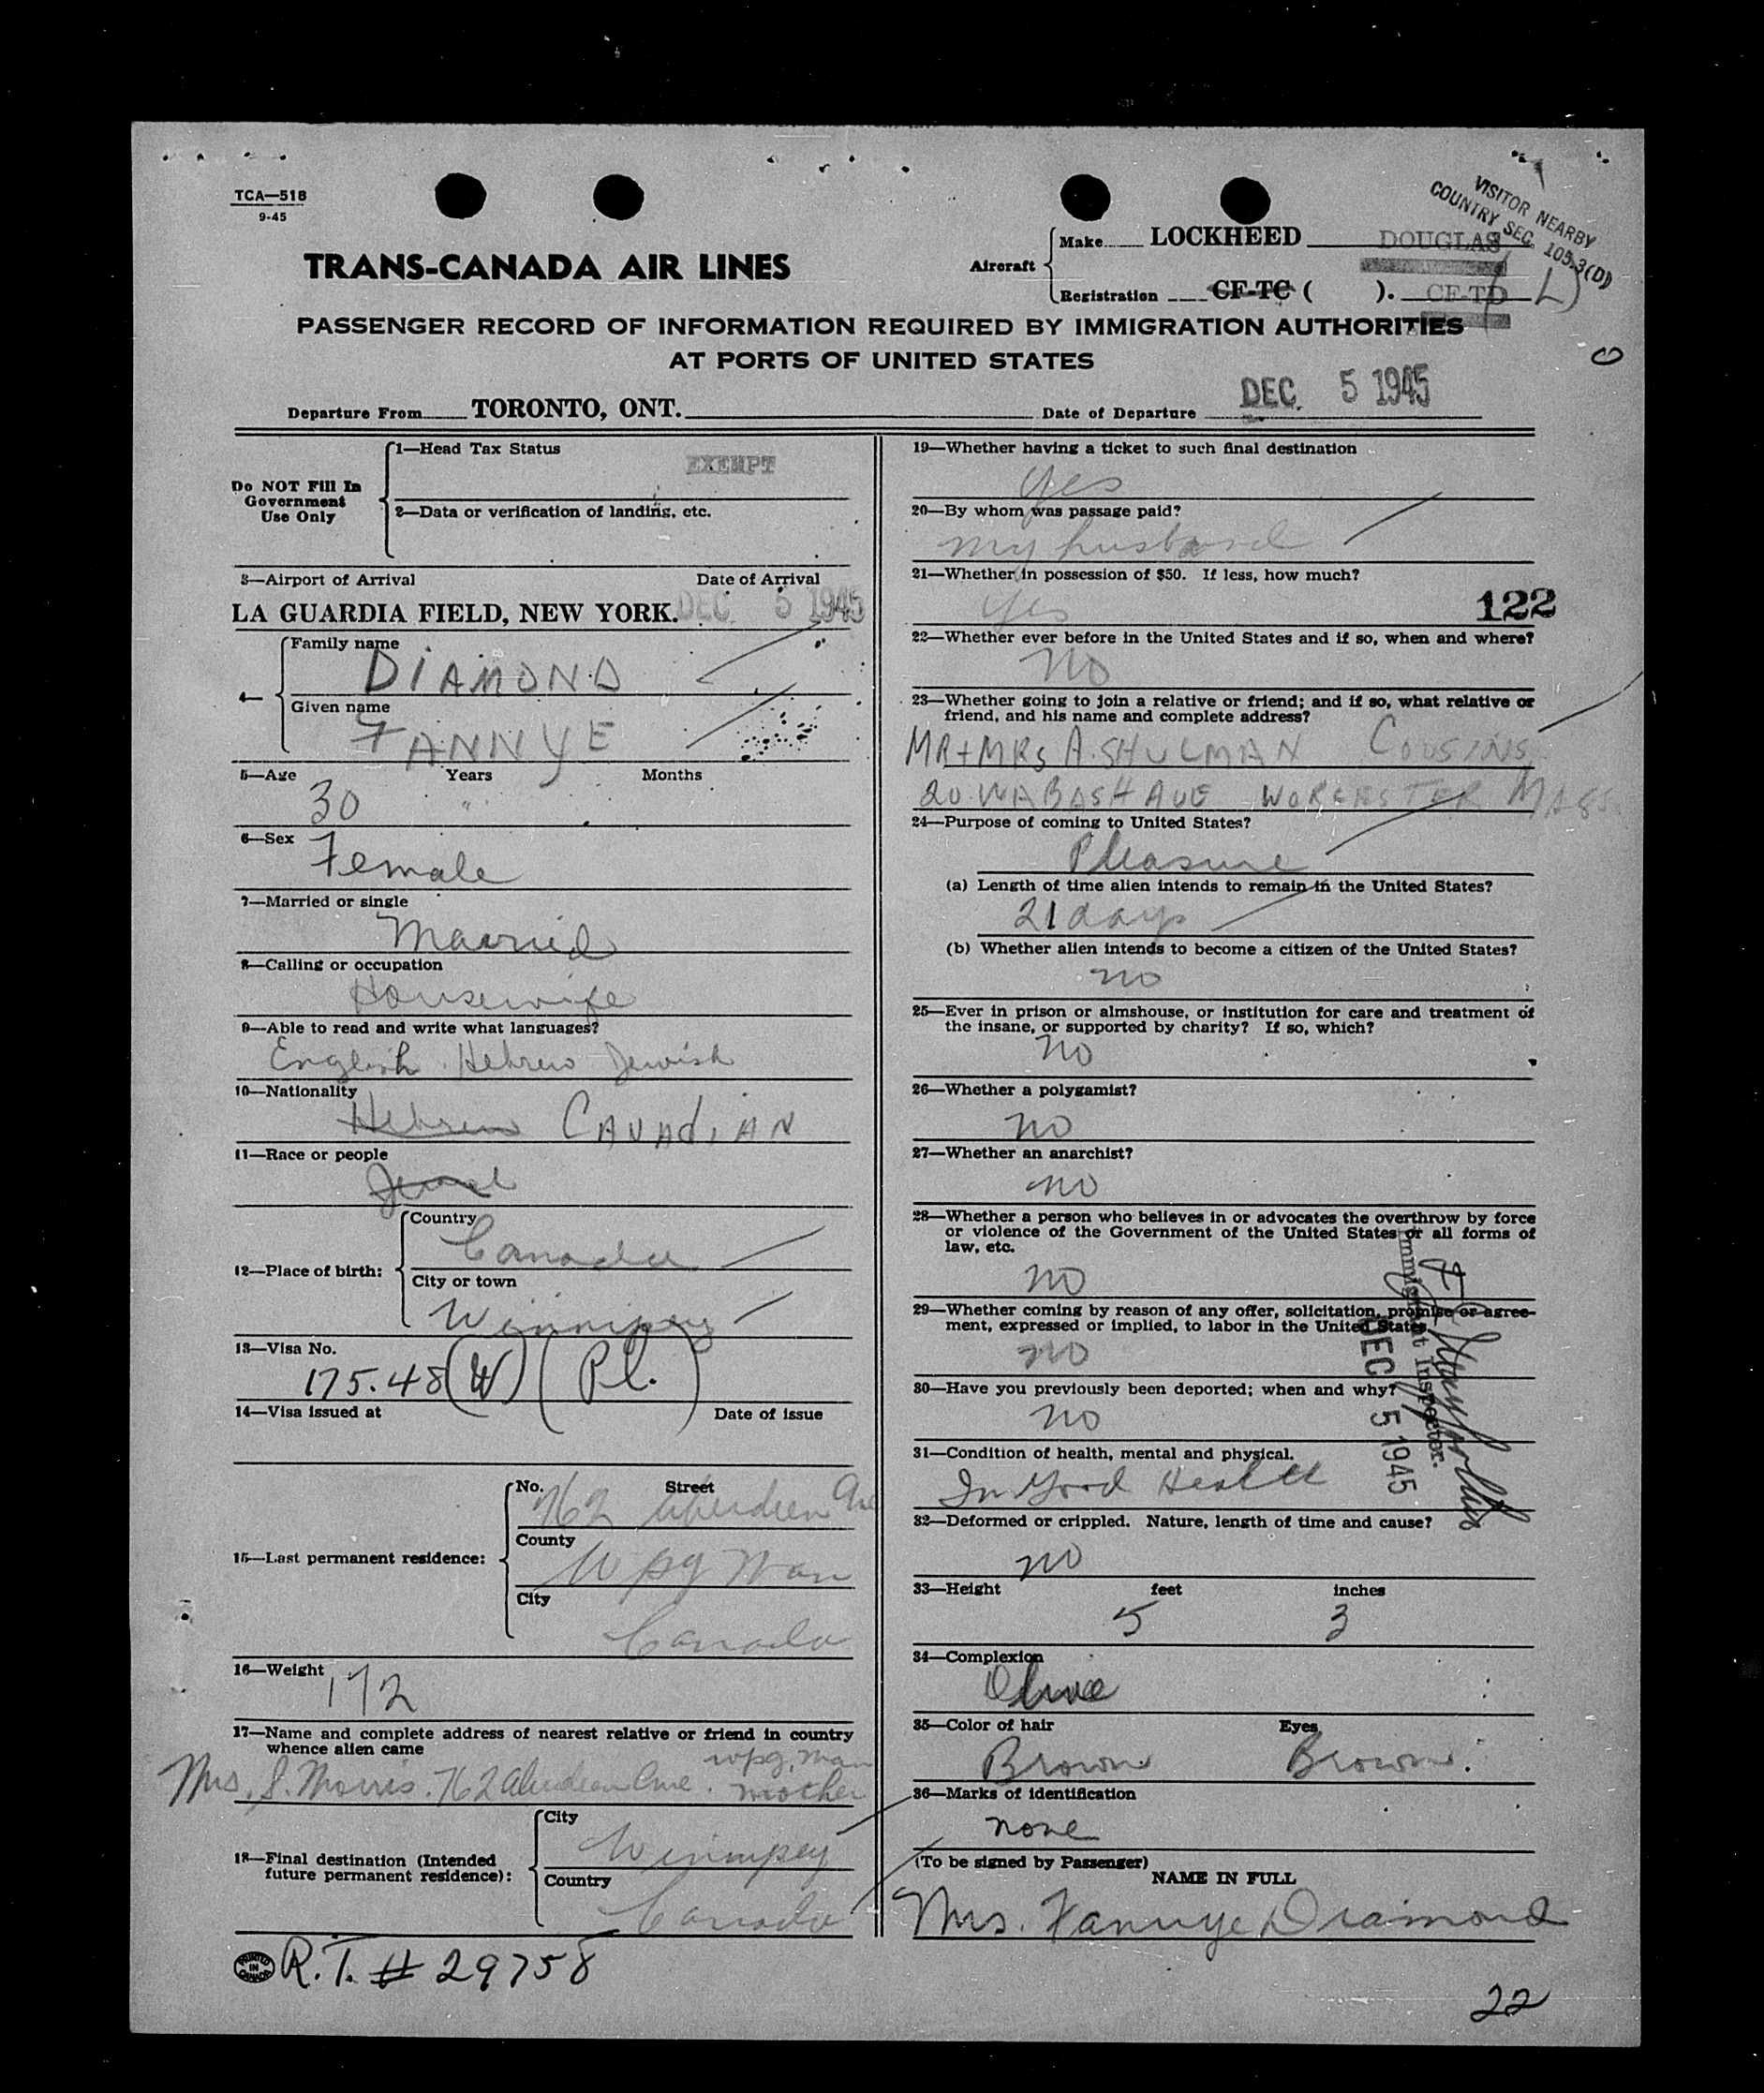 TCA—518
9-45
VISITOR NEARBY
COUNTRY SEC. 105.3(D)
TRANS-CANADA AIR LINES
Aircraft
Make LOCKHEED DOUGLAS
Registration CF-TC ( ). CF-TD (L)
PASSENGER RECORD OF INFORMATION REQUIRED BY IMMIGRATION AUTHORITIES
AT PORTS OF UNITED STATES
Departure From TORONTO, ONT. Date of Departure DEC. 5 1945
Do NOT Fill In
Government
Use Only
1—Head Tax Status
EXEMPT
2—Data or verification of landing, etc.
3—Airport of Arrival Date of Arrival
LA GUARDIA FIELD, NEW YORK. DEC. 5 1945
4—
Family name
DIAMOND
Given name
FANNYE
5—Age Years Months
30 "
6—Sex
Female
7—Married or single
Married
8—Calling or occupation
Housewife
9—Able to read and write what languages?
English Hebrew Jewish
10—Nationality
Hebrew CANADIAN
11—Race or people
12—Place of birth:
Country
Canada
City or town
Winnipeg
13—Visa No.
175.48 (W) (Pl.)
14—Visa issued at Date of issue
15—Last permanent residence:
No. Street
762 Aberdeen Ave
County
Wpg Man
City
Canada
16—Weight
172
17—Name and complete address of nearest relative or friend in country
whence alien came
wpg, Man
Mrs. S. Morris. 762 Aberdeen Ave. mother
18—Final destination (Intended
future permanent residence):
City
Winnipeg
Country
Canada
PRINTED
IN
CANADA
R.T. # 29758
19—Whether having a ticket to such final destination
Yes
20—By whom was passage paid?
my husband
21—Whether in possession of $50. If less, how much?
Yes
122
22—Whether ever before in the United States and if so, when and where?
No
23—Whether going to join a relative or friend; and if so, what relative or
friend, and his name and complete address?
MR + MRS A. SHULMAN COUSINS
20 WABASH AVE WORCESTER MASS
24—Purpose of coming to United States?
Pleasure
(a) Length of time alien intends to remain in the United States?
21 days
(b) Whether alien intends to become a citizen of the United States?
no
25—Ever in prison or almshouse, or institution for care and treatment of
the insane, or supported by charity? If so, which?
no
26—Whether a polygamist?
no
27—Whether an anarchist?
no
28—Whether a person who believes in or advocates the overthrow by force
or violence of the Government of the United States or all forms of
law, etc.
no
29—Whether coming by reason of any offer, solicitation, promise or agree-
ment, expressed or implied, to labor in the United States
no
30—Have you previously been deported; when and why?
no
Immigrant Inspector.
DEC 5 1945
31—Condition of health, mental and physical.
In Good Health
32—Deformed or crippled. Nature, length of time and cause?
no
33—Height feet inches
5 3
34—Complexion
Olive
35—Color of hair Eyes
Brown Brown.
36—Marks of identification
none
(To be signed by Passenger)
NAME IN FULL
Mrs. Fannye Diamond
22